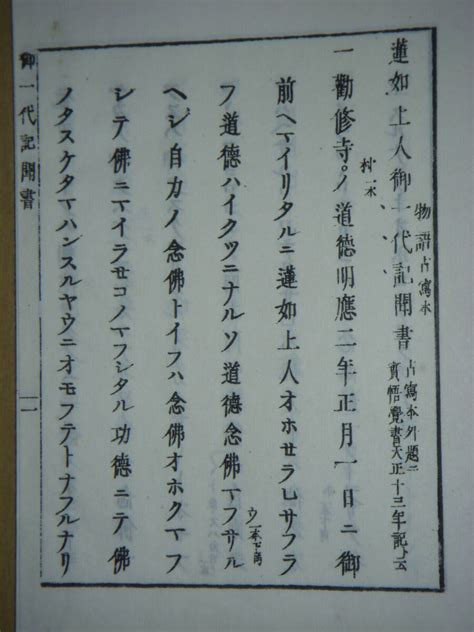 蓮如上人御一代記聞書
物語古寫本
古寫本外題ニ
實悟覺書天正十三年記、云
村一本
一勸修寺ノ道德明應二年正月一日ニ御
前ヘマイリタルニ蓮如上人オホセラレサフラ
フ道德ハイクツニナルソ道德念佛マフサル
ヘシ自力ノ念佛トイフハ念佛オホクマフ
シテ佛ニマイラセコノマフシタル功德ニテ佛
ノタスケタマハンスルヤウニオモフテトナフルナリ
御一代記聞書